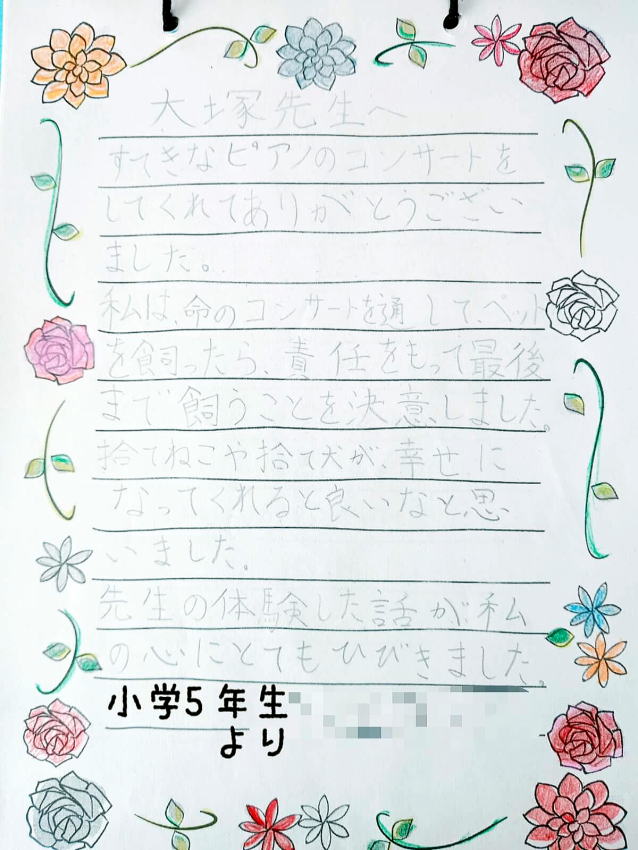 大塚先生へ
すてきなピアノのコンサートを
してくれてありがとうござい
ました。
私は、命のコンサートを通して、ペット
を飼ったら、責任をもって最後
まで飼うことを決意しました。
捨てねこや捨て犬が、幸せに
なってくれると良いなと思
いました。
先生の体験した話が私
の心にとてもひびきました。
小学5年生
より